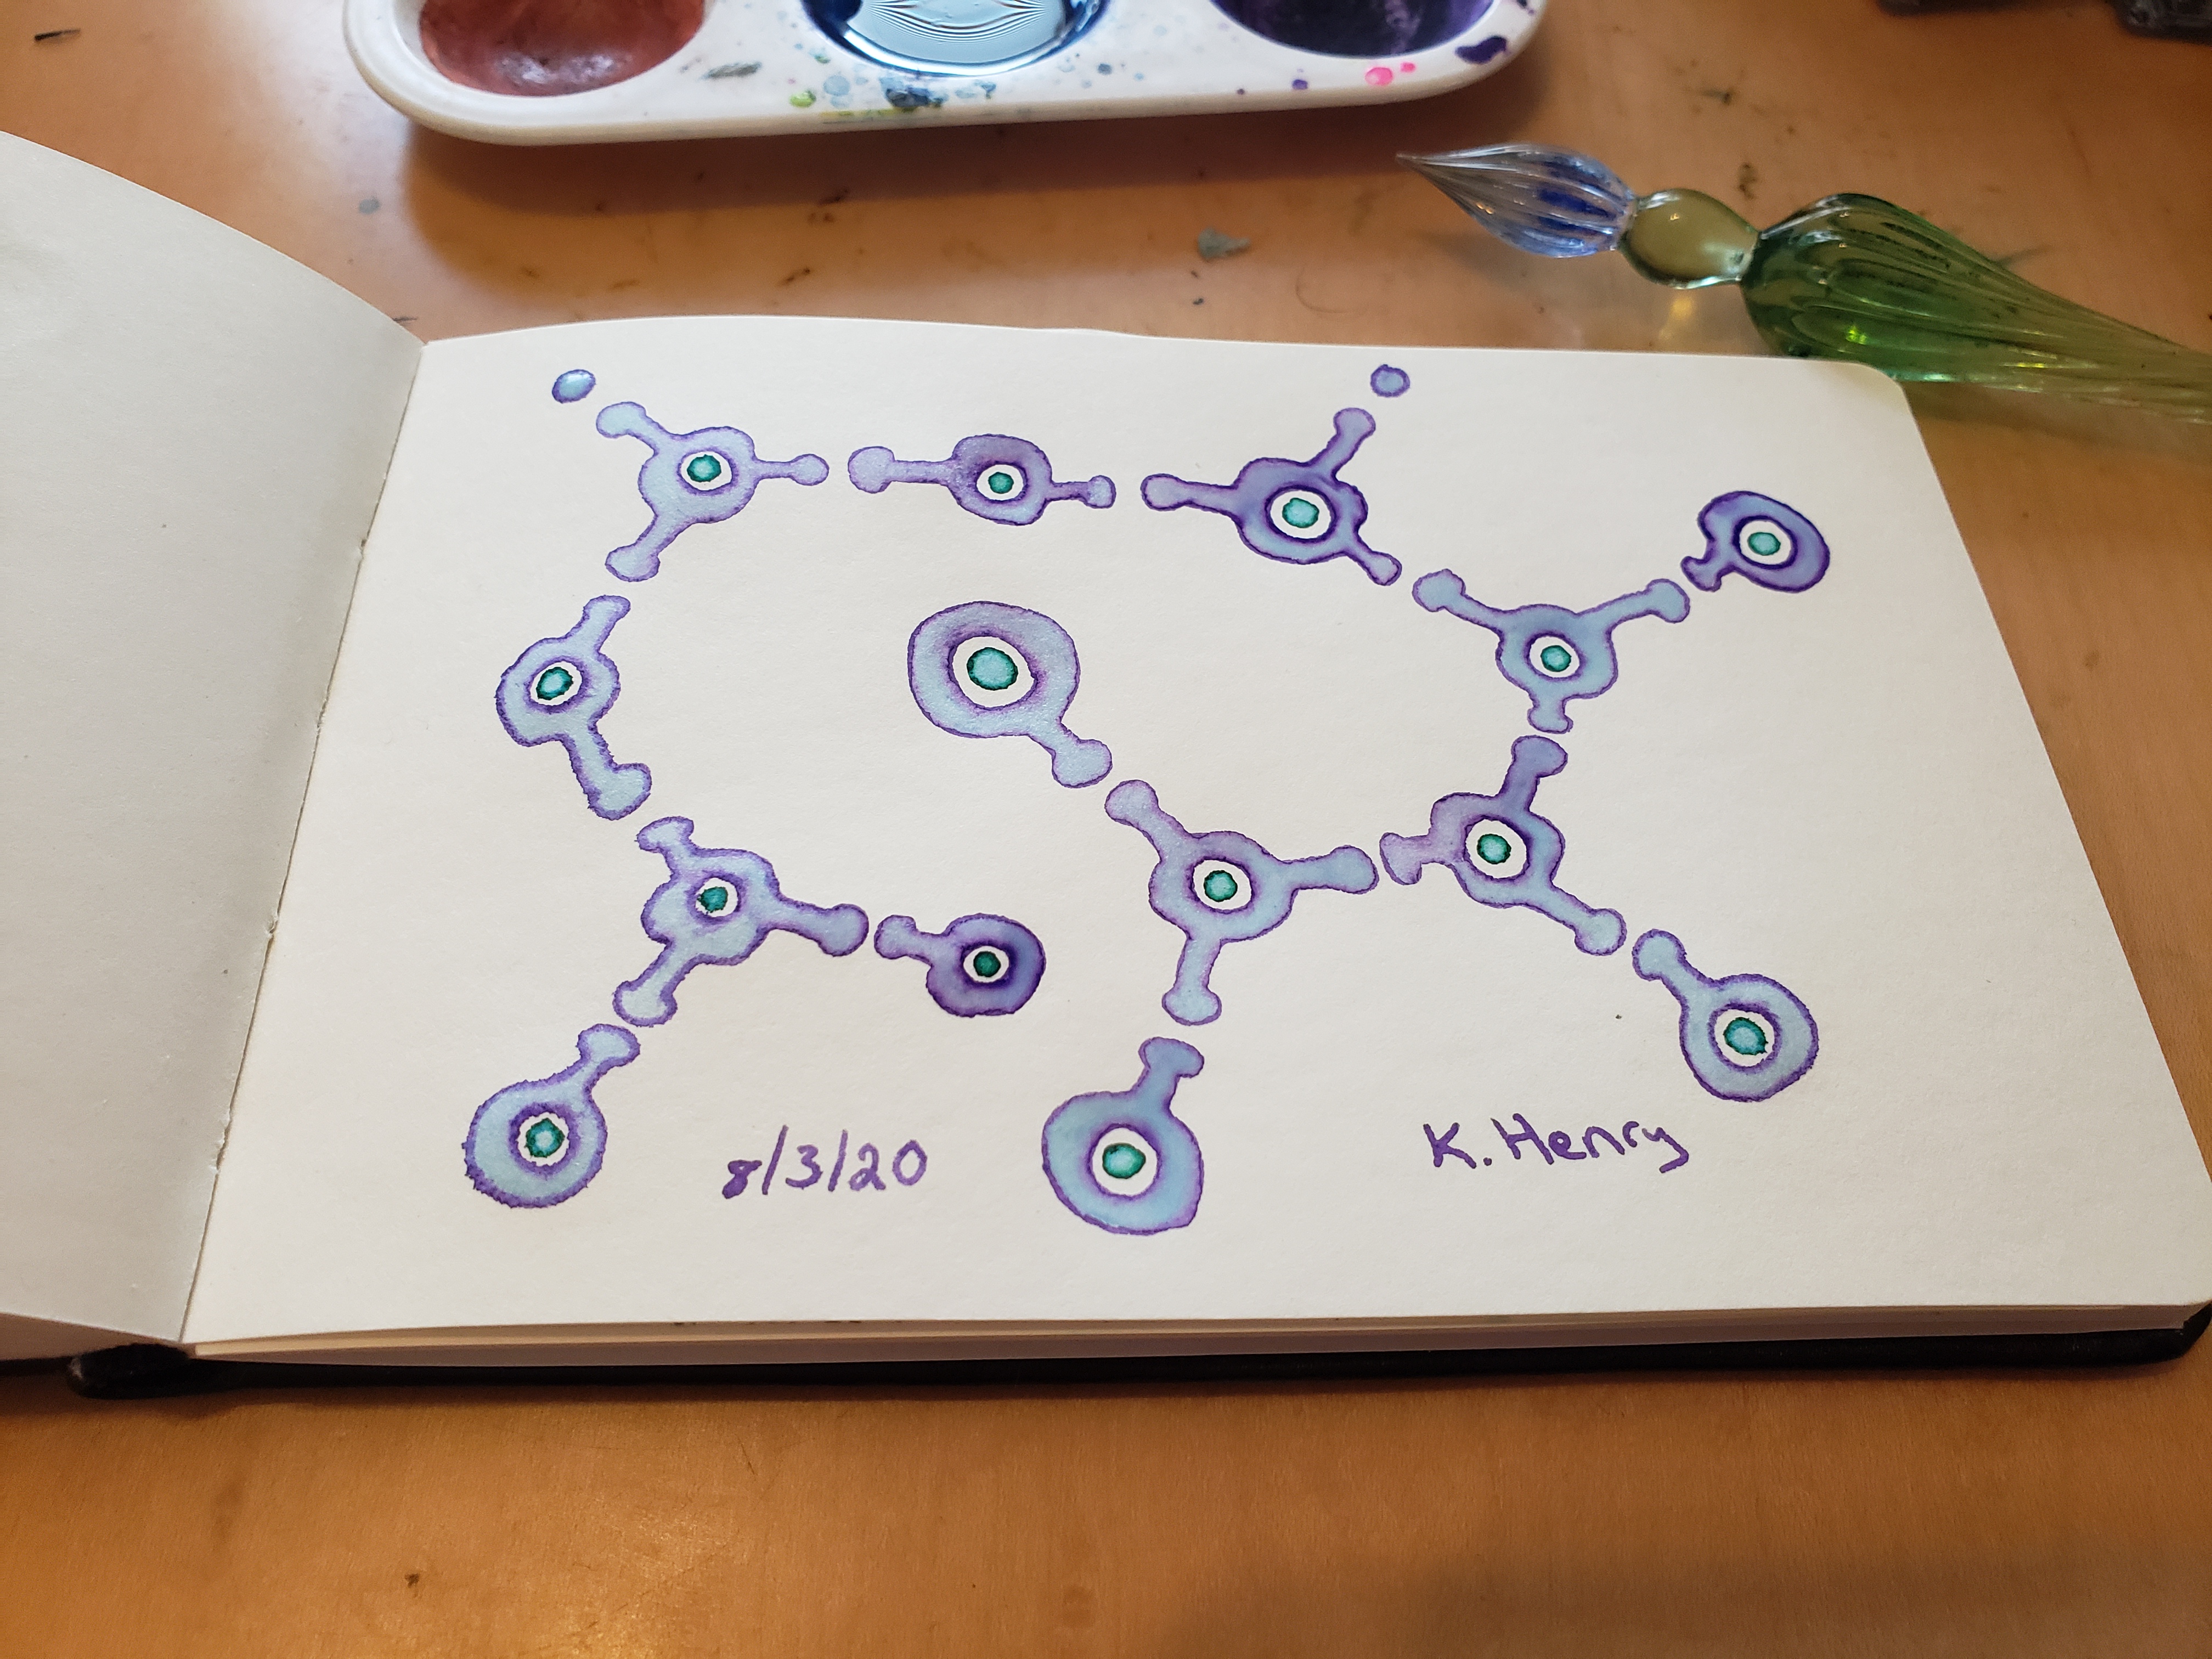 8/3/20
K. Henry